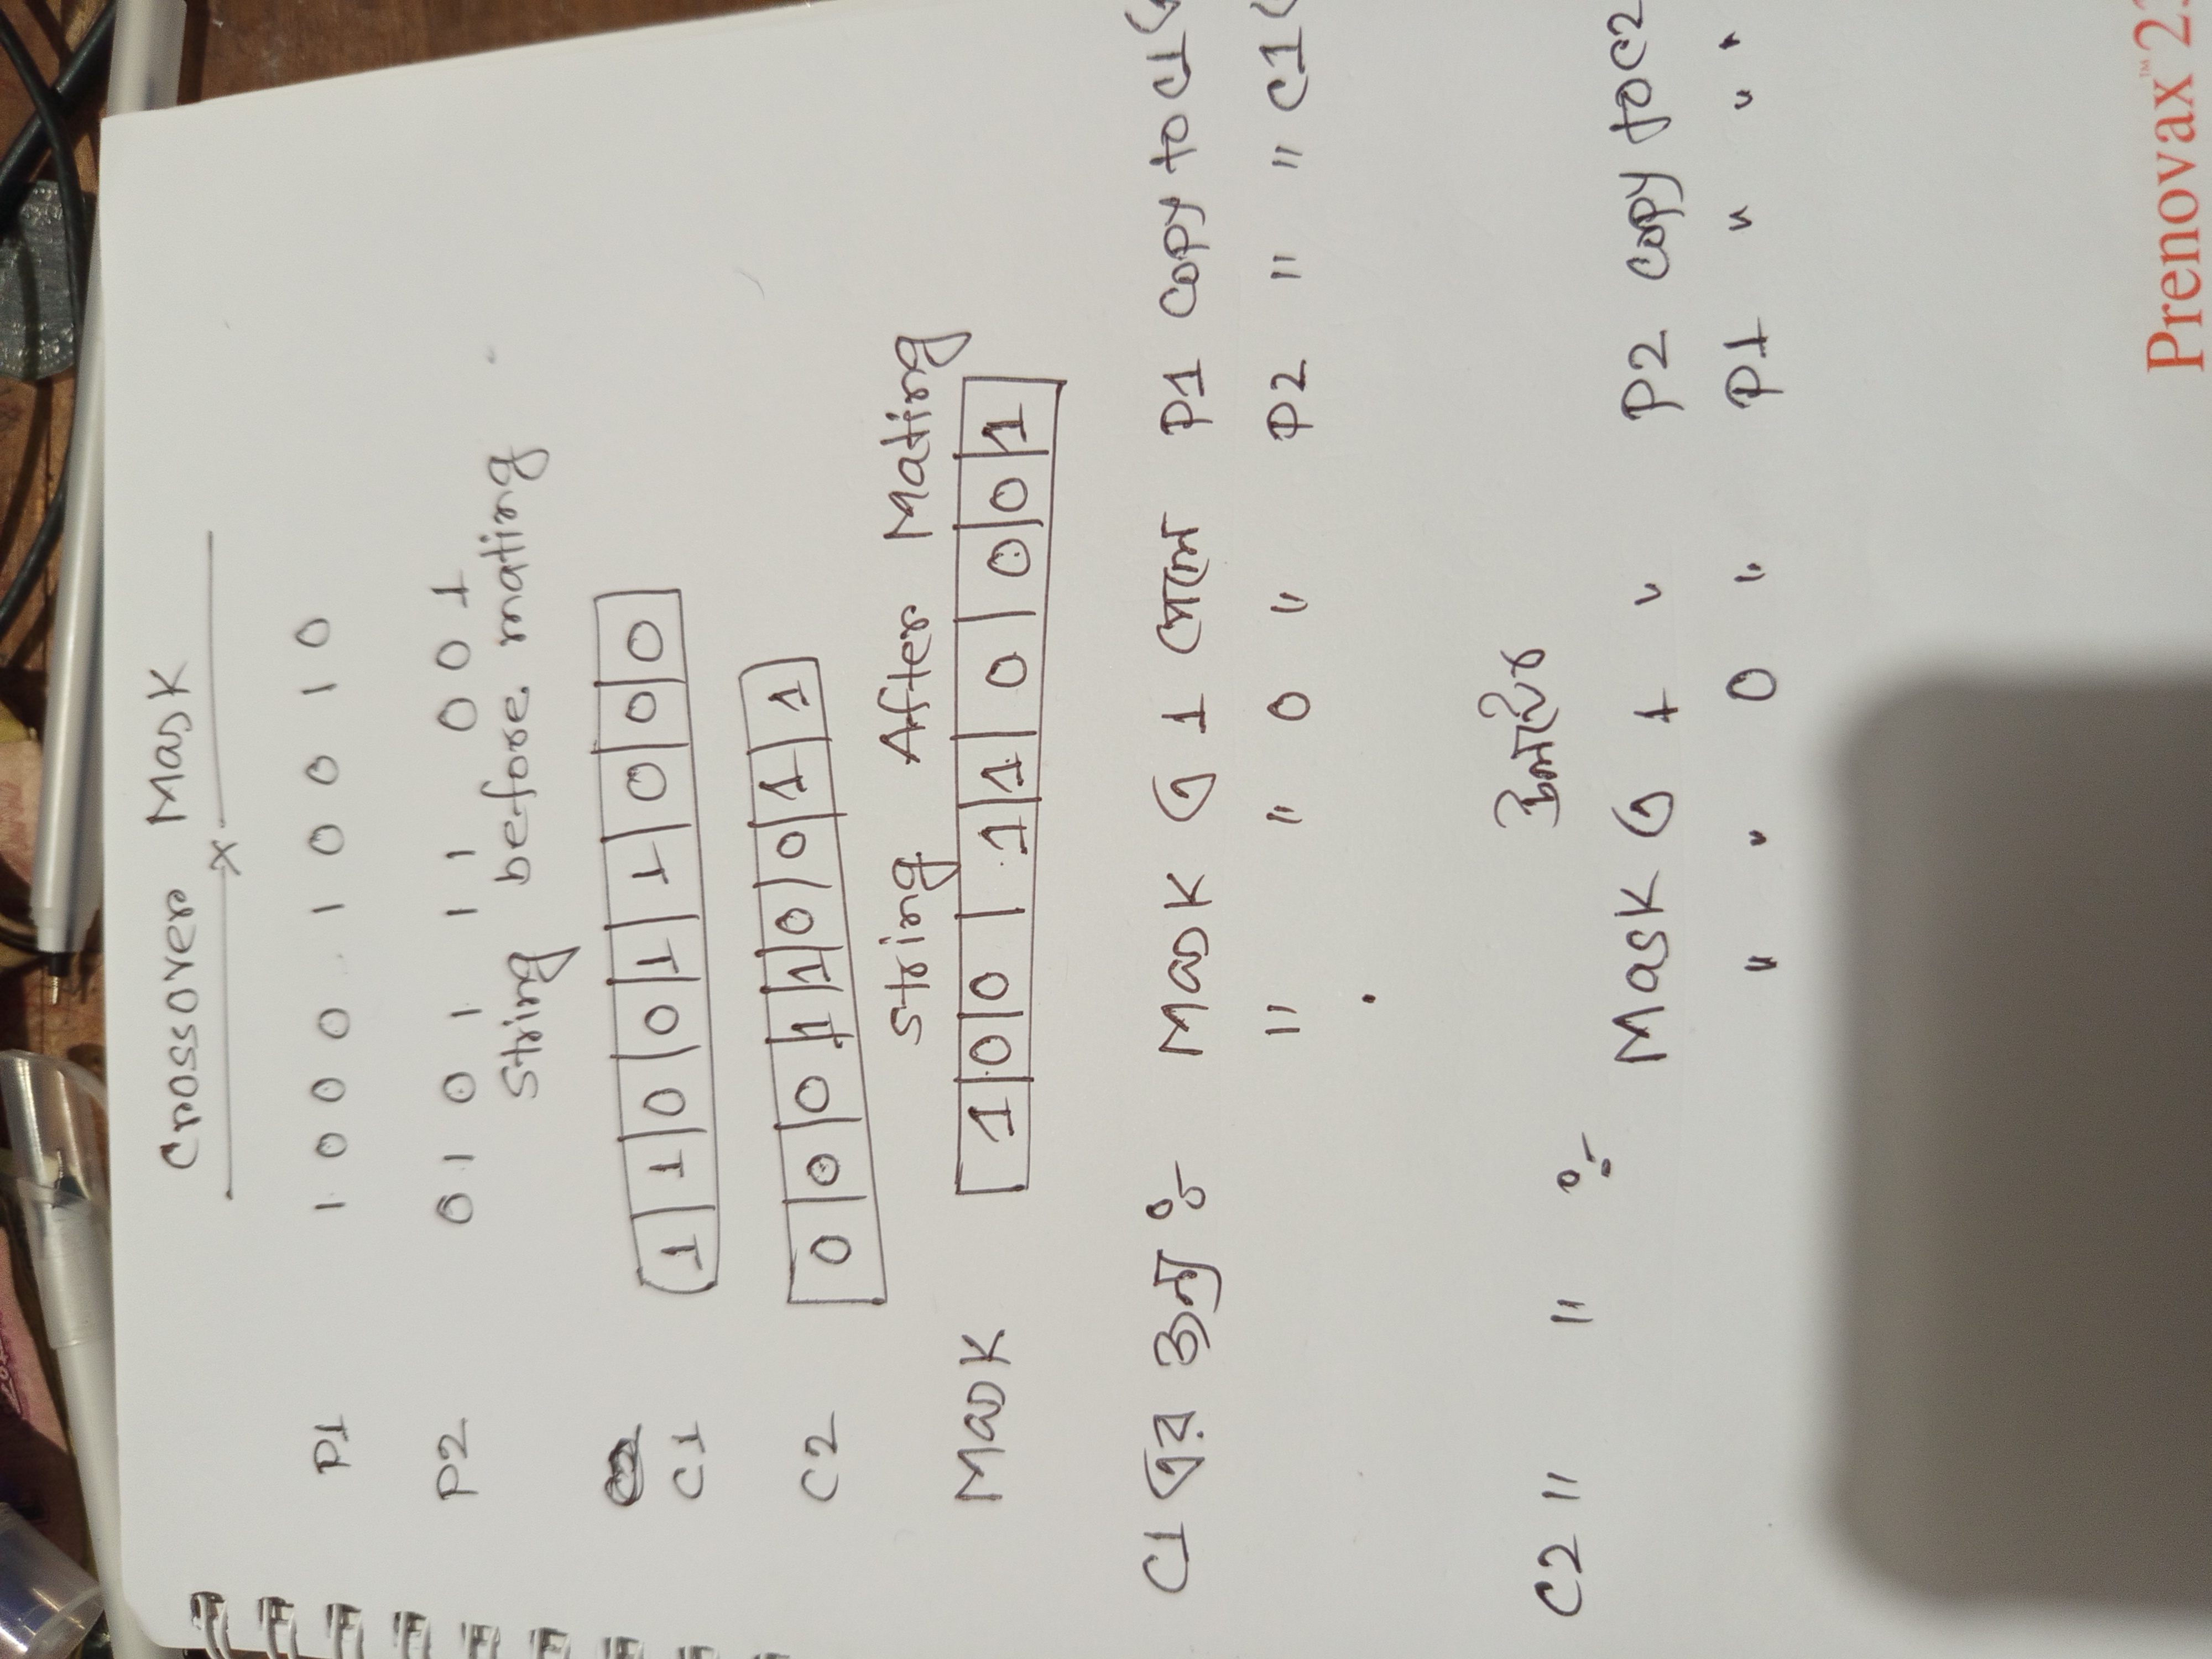 Crossover Mask
P1 1 0 0 0 1 0 0 1 0
P2 0 1 0 1 1 1 0 0 1
String before mating
C1 1 1 0 0 1 1 0 0 0
C2 0 0 0 1 1 0 0 1 1
String After Mating
Mask 1 0 0 1 1 0 0 0 1
C1 এর জন্য ঃ- Mask এ 1 পেলে P1 copy to C1 এ
" " 0 " P2 " " C1
উলটোর
C2 " " ঃ-
Mask এ 1 " P2 copy to C2
" " 0 " P1 " " "
Prenovax™ 2